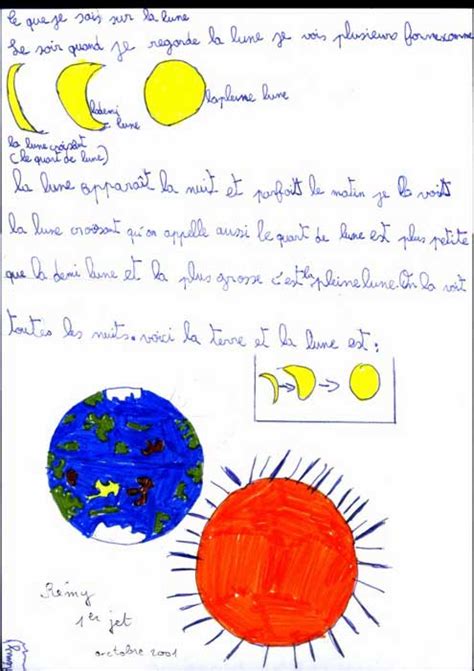 Ce que je sais sur la lune
Le soir quand je regarde la lune je vois plusieurs formes comme
la demi lune
la pleine lune
la lune croissant
(le quart de lune)
la lune apparaît la nuit et parfoit le matin je la voit
la lune croissant qu'on appelle aussi le quart de lune est plus petite
que la demi lune et la plus grosse c'est la pleine lune. On la voit
toutes les nuits. voici la terre et la lune est :
Rémy
1er jet
octobre 2001